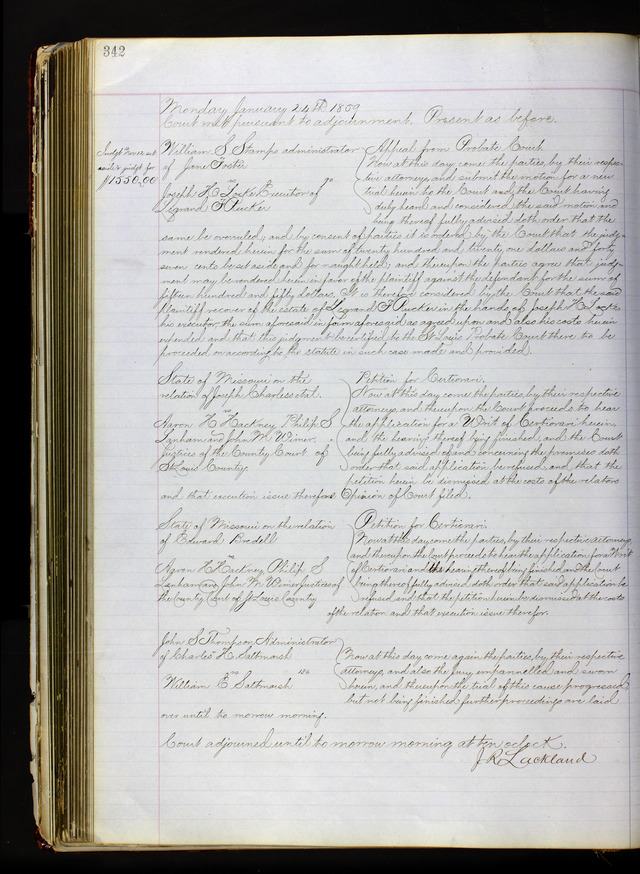 342
Monday January 24th 1859
Court met pursuant to adjournment. Present as before.
Judgt
$1550.00
William S Stamps administrator
of Jane Foster
vs
Joseph H Locke Executor of
Legrand F Rucker
Appeal from Probate Court
Now at this day come the parties by their respec-
tive attorneys, and submit the motion for a new
trial herein to the Court and the Court having
duly heard and considered the said motion and
being thereof fully advised doth order that the
same be overruled, and by consent of parties it is ordered by the Court that the judg-
ment rendered herein for the sum of twenty hundred and twenty one dollars and forty
seven cents be set aside and for naught held, and thereupon the parties agree that judg-
ment may be rendered herein in favor of the plaintiff against the defendant for the sum of
fifteen hundred and fifty dollars. It is therefore considered by the Court that the said
plaintiff recover of the estate of Legrand F Rucker in the hands of Joseph H Locke
his executor the sum aforesaid in form aforesaid as agreed upon and also his costs herein
expended and that this judgment be certified to the St Louis Probate Court there to be
proceeded on according to the statute in such case made and provided.
State of Missouri on the
relation of Joseph Charless et al.
vs
Aaron H Hackney Philip S
Lanham and John M. Wimer.
Justices of the County Court of
St Louis County.
Petition for Certiorari.
Now at this day come the parties, by their respective
attorneys, and thereupon the Court proceeds to hear
the application for a Writ of Certiorari herein,
and the hearing thereof being finished, and the Court
being fully advised of and concerning the premises doth
order that said application be refused, and that the
petition herein be dismissed at the costs of the relators
and that execution issue therefor. Opinion of Court filed.
State of Missouri on the relation
of Edward Bredell
vs
Aaron H Hackney Philip S
Lanham and John M Wimer justices of
the County Court of St Louis County
Petition for Certiorari.
Now at this day come the parties, by their respective attorneys,
and thereupon the Court proceeds to hear the application for a Writ
of Certiorari and the hearing thereof being finished and the Court
being thereof fully advised doth order that said application be
refused, and that the petition herein be dismissed at the costs
of the relator and that execution issue therefor.
John S Thompson Administrator
of Charles H. Saltmarsh
vs 126
William E Saltmarsh
Now at this day come again the parties, by their respective
attorneys, and also the jury empannelled and sworn
herein, and thereupon the trial of this cause progressed
but not being finished further proceedings are laid
over until to morrow morning.
Court adjourned until to morrow morning at ten oclock.
J R Lackland